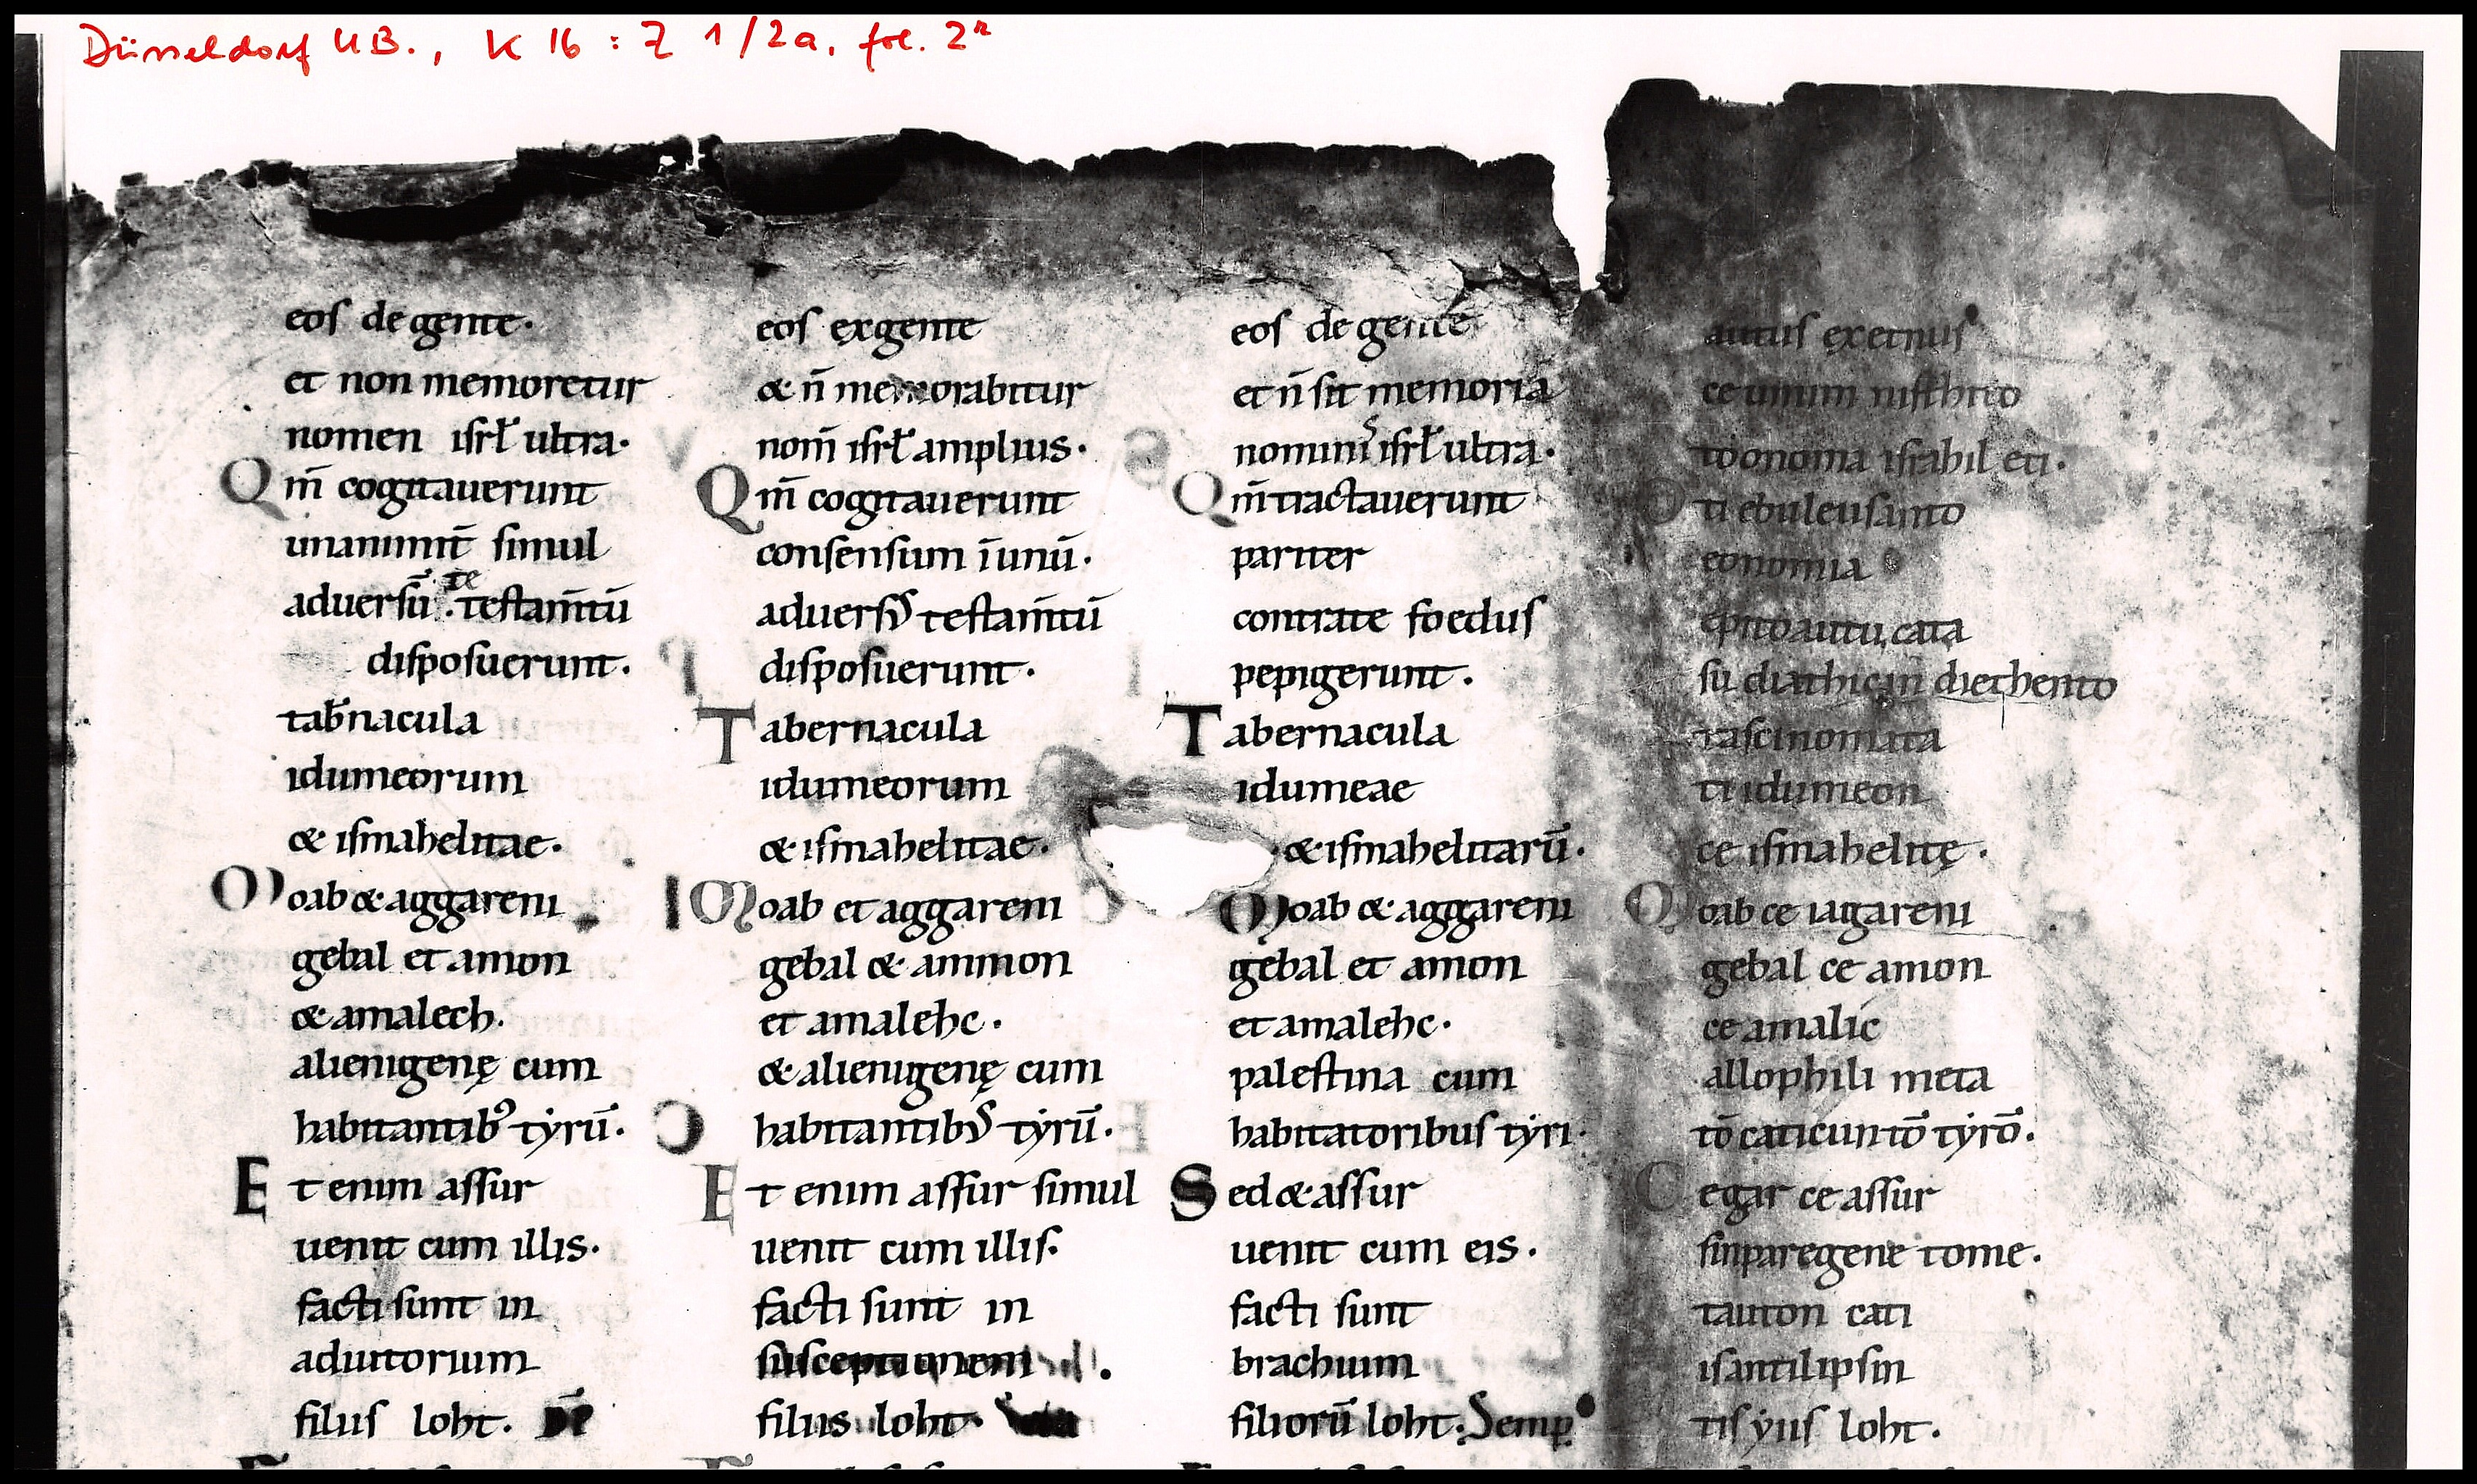 Düsseldorf UB., K 16 : Z 1/2a, fol. 2r
eos de gente.
et non memoretur
nomen isrł ultra.
Qm̄ cogitauerunt
unanimit̄ simul
te
aduersū . testam̄tū
disposuerunt.
tab̄nacula
idumeorum
& ismahelitae.
Moab & aggareni
gebal et amon
& amalech.
alienigenę cum
habitantibꝰ tyrū.
Et enim assur
uenit cum illis.
facti sunt in
adiutorium
filiis loht.
eos ex gente
& n̄ memorabitur
nom̄ isrł amplius.
Qm̄ cogitauerunt
consensum ī unū.
aduersꝰ testam̄tū
disposuerunt.
Tabernacula
idumeorum
& ismahelitae.
Moab et aggareni
gebal & ammon
et amalehc.
& alienigenę cum
habitantibꝰ tyrū.
Et enim assur simul
uenit cum illis.
facti sunt in
susceptionem
filiis loht.
eos de gente
et n̄ sit memoria
nominis isrł ultra.
Qm̄ tractauerunt
pariter
contra te foedus
pepigerunt.
Tabernacula
idumeae
& ismahelitarū.
Moab & aggareni
gebal et amon
et amalehc.
palestina cum
habitatoribus tyri.
Sed & assur
uenit cum eis.
facti sunt
brachium
filiorū loht. Semp
autus exetnus
ce umim nisthito
to onoma israhil eti.
Oti ebuleusanto
eonomia
epitoautu cata
su diathicin diethento
tascinomata
ti idumeon
ce ismahelitę.
Moab ce iagareni
gebal ce amon
ce amalic
allophili meta
tō caticuntō tyrō.
Cegar ce assur
sinparegene tome.
tauton cati
isantilipsin
tis yiis loht.